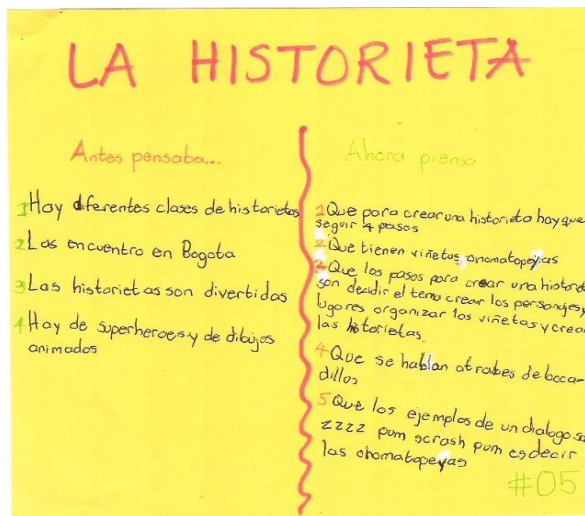 LA HISTORIETA
Antes pensaba...
1 Hay diferentes clases de historietas
2 Las encuentro en Bogota
3 Las historietas son divertidas
4 Hay de superheroes y de dibujos
animados
Ahora pienso
1 Que para crear una historieta hay que
seguir 4 pasos
2 Que tienen viñetas, onomatopeyas
3 Que los pasos para crear una historieta
son decidir el tema crear los personajes y
lugares organizar las viñetas y crear
las historietas.
4 Que se hablan atrabes de boca-
dillos
5 Que los ejemplos de un dialogo
zzzz pum scrash pum es decir
las onomatopeyas
#05